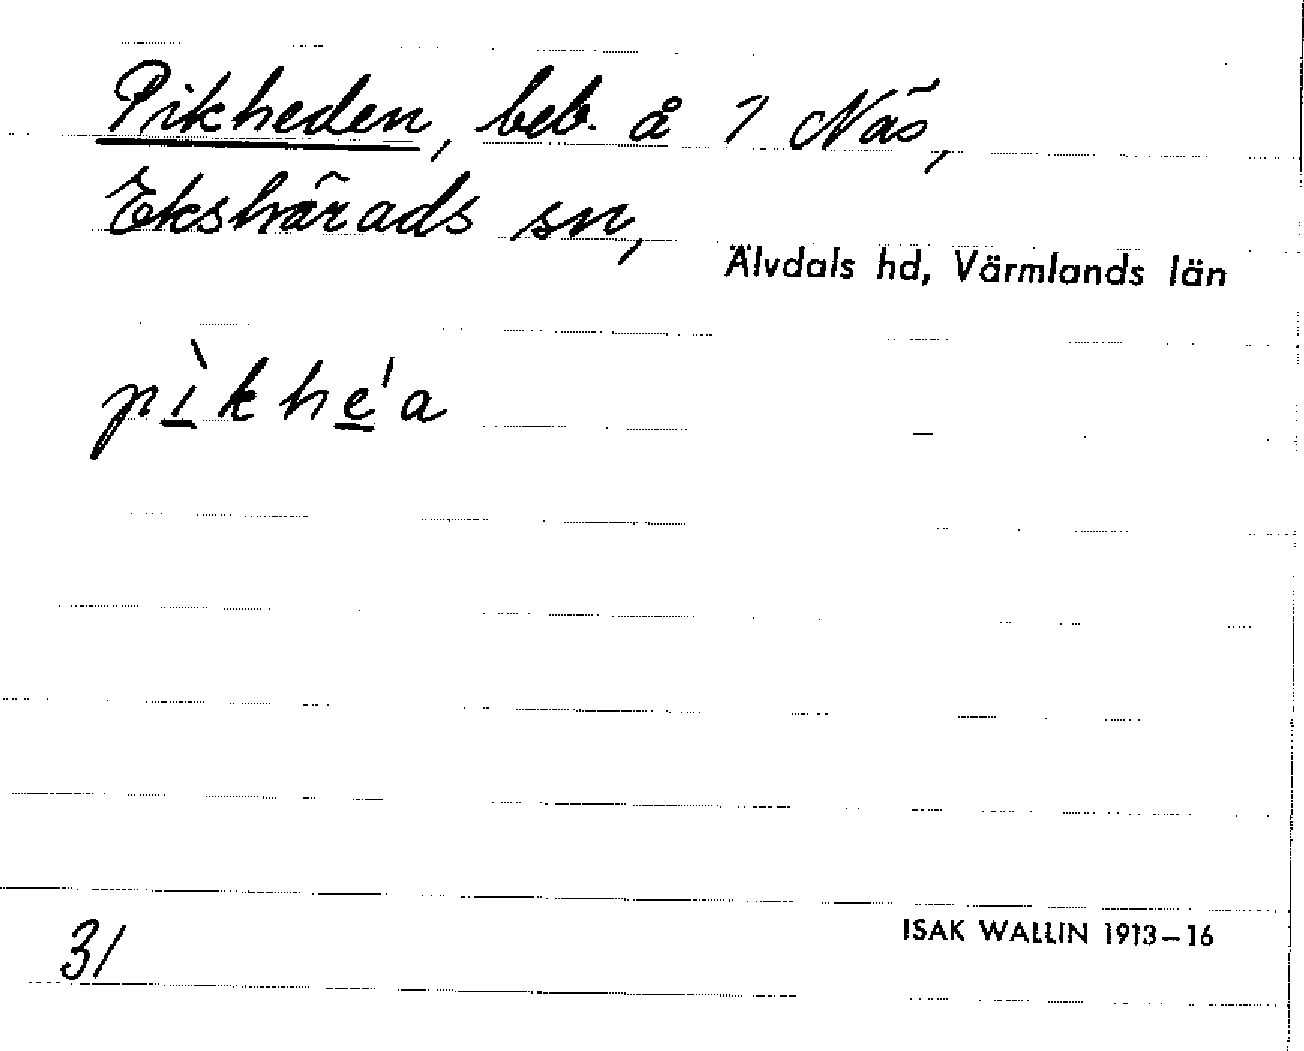 Pikheden, beb. å 1 Näs,
Ekshärads sn,
Älvdals hd, Värmlands län
pı̀khe'a
31
ISAK WALLIN 1913–16